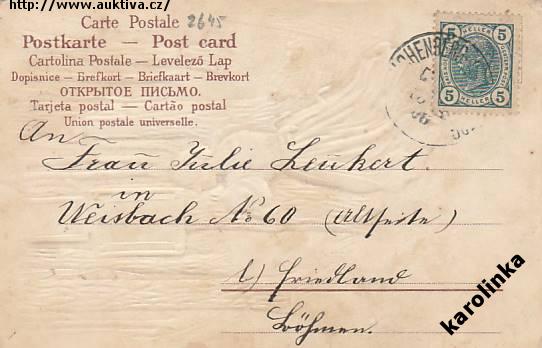 http://www.auktiva.cz/
Carte Postale 2645
Postkarte — Post card
Cartolina Postale — Levelező Lap
Dopisnice — Brefkort — Briefkaart — Brevkort
ОТКРЫТОЕ ПИСЬМО.
Tarjeta postal — Cartão postal
Union postale universelle.
5 HELLER 5
5 HELLER 5
An
Frau Julie Leukert.
in
Weisbach No 60 (Altseite)
b/ Friedland
Böhmen.
karolinka